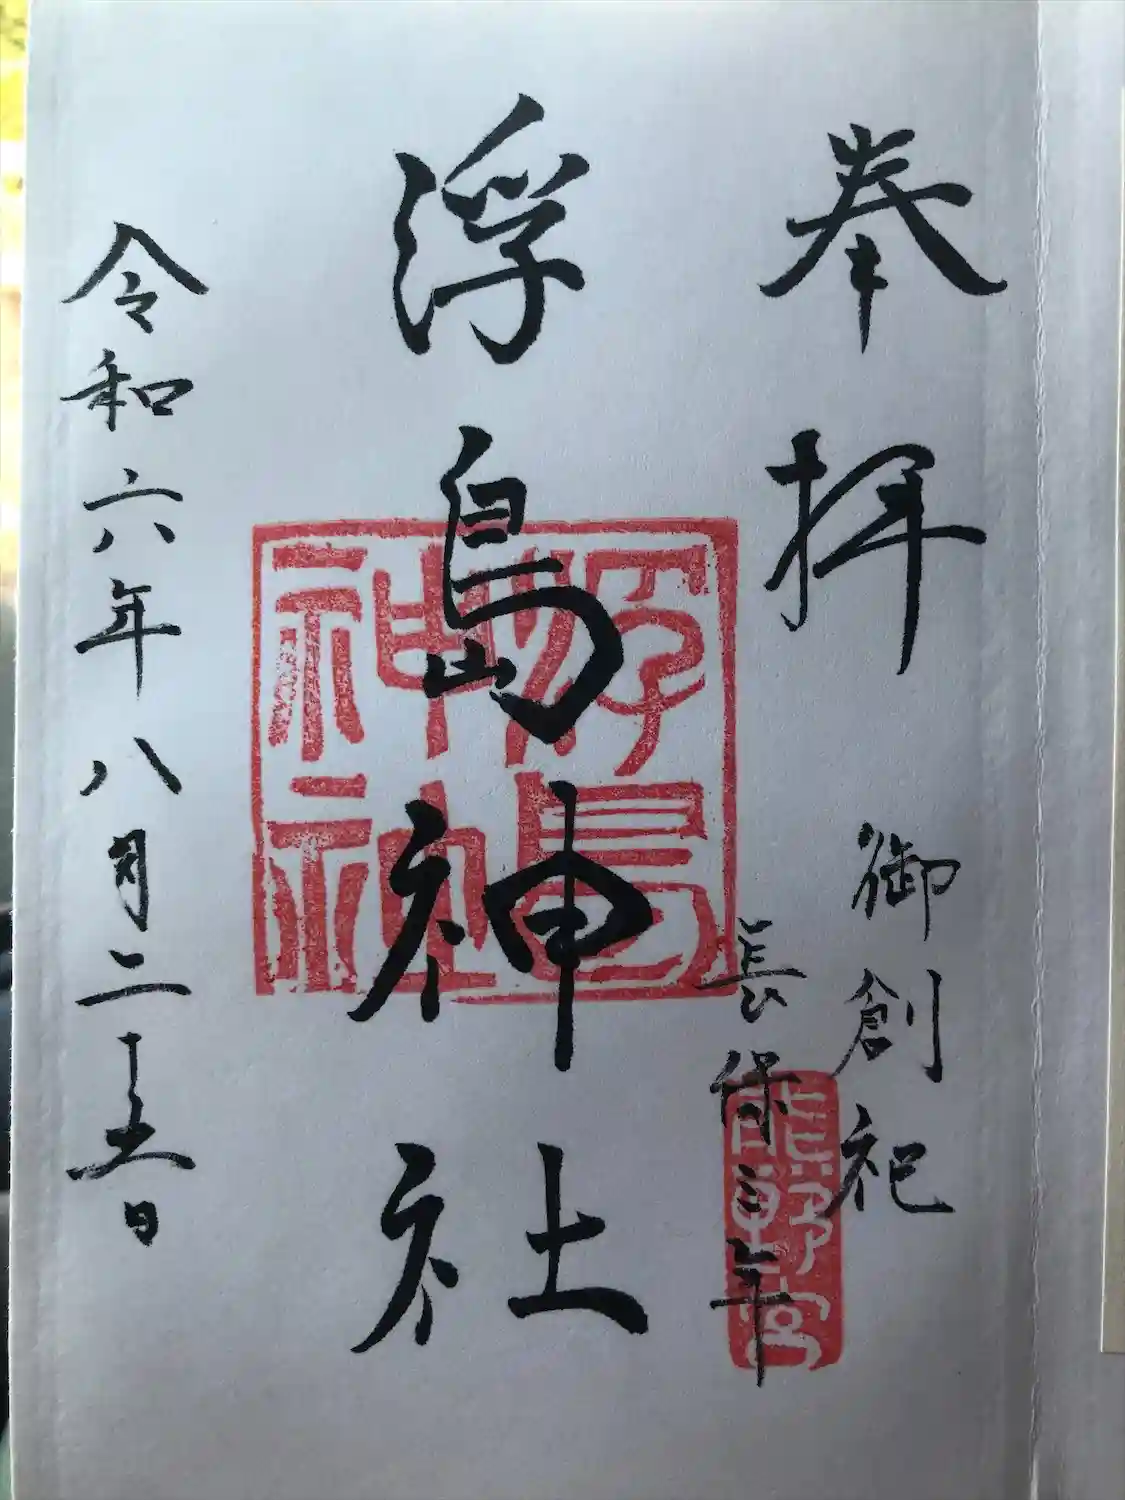 奉拝
御創祀
長保三年
浮島神社
令和六年八月二十五日
浮島神社
熊野宮